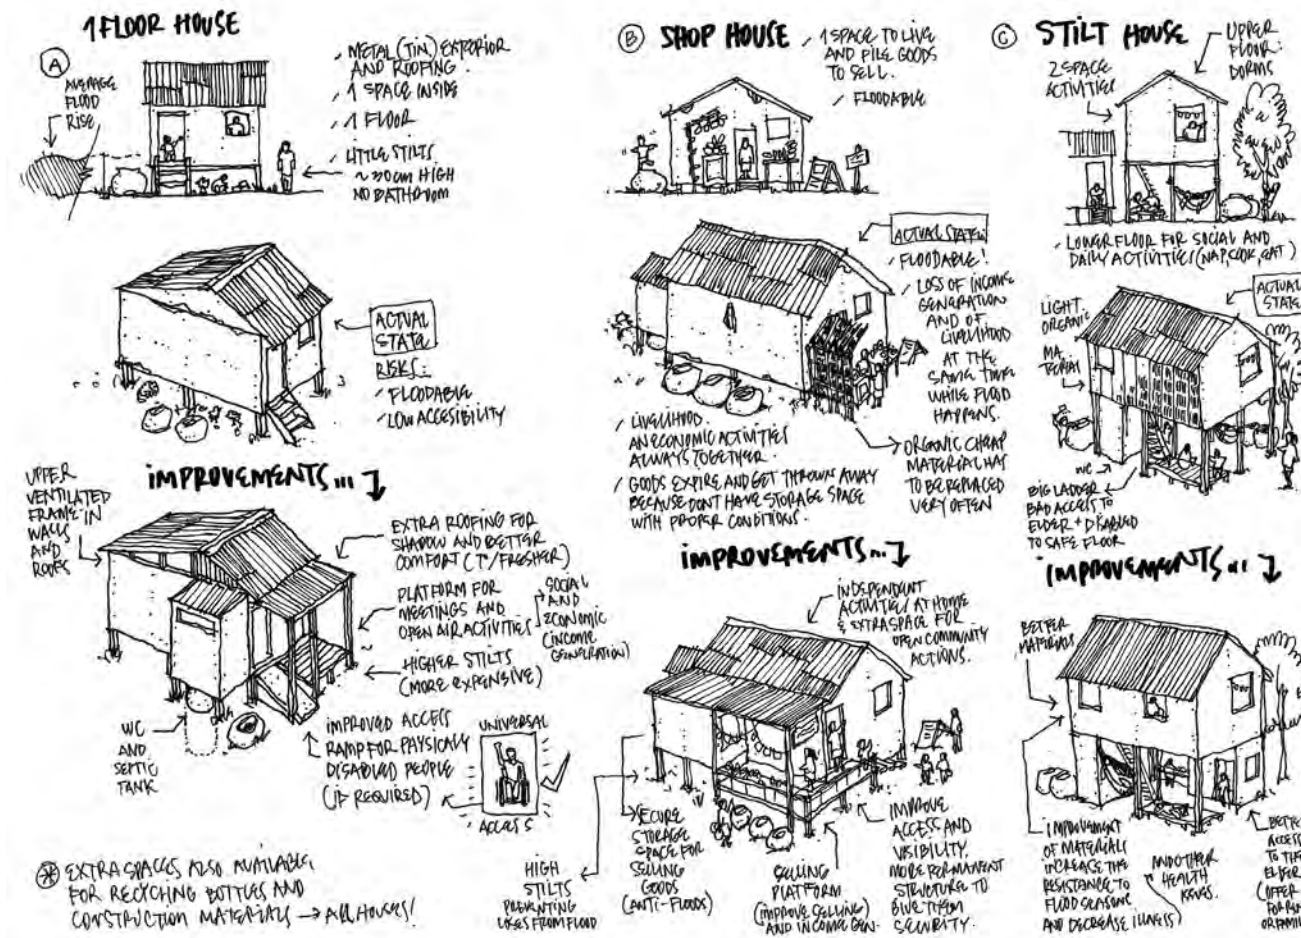 1 FLOOR HOUSE
A
AVERAGE
FLOOD
RISE
/ METAL (TIN) EXTERIOR
AND ROOFING.
/ 1 SPACE INSIDE
/ 1 FLOOR
/ LITTLE STILTS
~ 30cm HIGH
NO BATHROOM
ACTUAL
STATE
RISKS:
/ FLOODABLE
/ LOW ACCESIBILITY
IMPROVEMENTS...
UPPER
VENTILATED
FRAME IN
WALLS
AND
ROOFS
EXTRA ROOFING FOR
SHADOW AND BETTER
COMFORT (Tº/FRESHER)
PLATFORM FOR
MEETINGS AND
OPEN AIR ACTIVITIES
SOCIAL
AND
ECONOMIC
(INCOME
GENERATION)
HIGHER STILTS
(MORE EXPENSIVE)
WC
AND
SEPTIC
TANK
IMPROVED ACCESS
RAMP FOR PHYSICALY
DISABLED PEOPLE
(IF REQUIRED)
UNIVERSAL
ACCESS
EXTRA SPACES ALSO AVAILABLE
FOR RECYCHING BOTTLES AND
CONSTRUCTION MATERIALS → ALL HOUSES!
B SHOP HOUSE
/ 1 SPACE TO LIVE
AND PILE GOODS
TO SELL.
/ FLOODABLE
ACTUAL STATE
/ FLOODABLE!
/ LOSS OF INCOME
GENERATION
AND OF
LIVELIHOOD
AT THE
SAME TIME
WHILE FLOOD
HAPPENS.
/ LIVELIHOOD.
AN ECONOMIC ACTIVITIES
ALWAYS TOGETHER.
/ GOODS EXPIRE AND GET THROWN AWAY
BECAUSE DONT HAVE STORAGE SPACE
WITH PROPER CONDITIONS.
ORGANIC CHEAP
MATERIAL HAS
TO BE REPLACED
VERY OFTEN
IMPROVEMENTS...
INDEPENDENT
ACTIVITIES AT HOME
& EXTRA SPACE FOR
OPEN COMMUNITY
ACTIONS.
HIGH
STILTS
PREVENTING
LOSES FROM FLOOD
SECURE
STORAGE
SPACE FOR
SELLING
GOODS
(ANTI-FLOODS)
SELLING
PLATFORM
(IMPROVE SELLING)
AND INCOME GEN.
IMPROVE
ACCESS AND
VISIBILITY.
MORE PERMANENT
STRUCTURE TO
GIVE THEM
SECURITY.
C STILT HOUSE
UPPER
FLOOR:
DORMS
2 SPACE
ACTIVITIES
/ LOWER FLOOR FOR SOCIAL AND
DAILY ACTIVITIES (NAP, COOK, EAT)
ACTUAL
STATE
LIGHT.
ORGANIC
MA
TERIAL
WC
BIG LADDER
BAD ACCESS TO
ELDER + DISABLED
TO SAFE FLOOR
IMPROVEMENTS...
BETTER
MATERIALS
IMPROVEMENT
OF MATERIALS
INCREASE THE
RESISTANCE TO
FLOOD SEASONS
AND DECREASE ILLNESS)
AND OTHER
HEALTH
ISSUES.
ACCESS
TO THE
ELDER
(OFFER